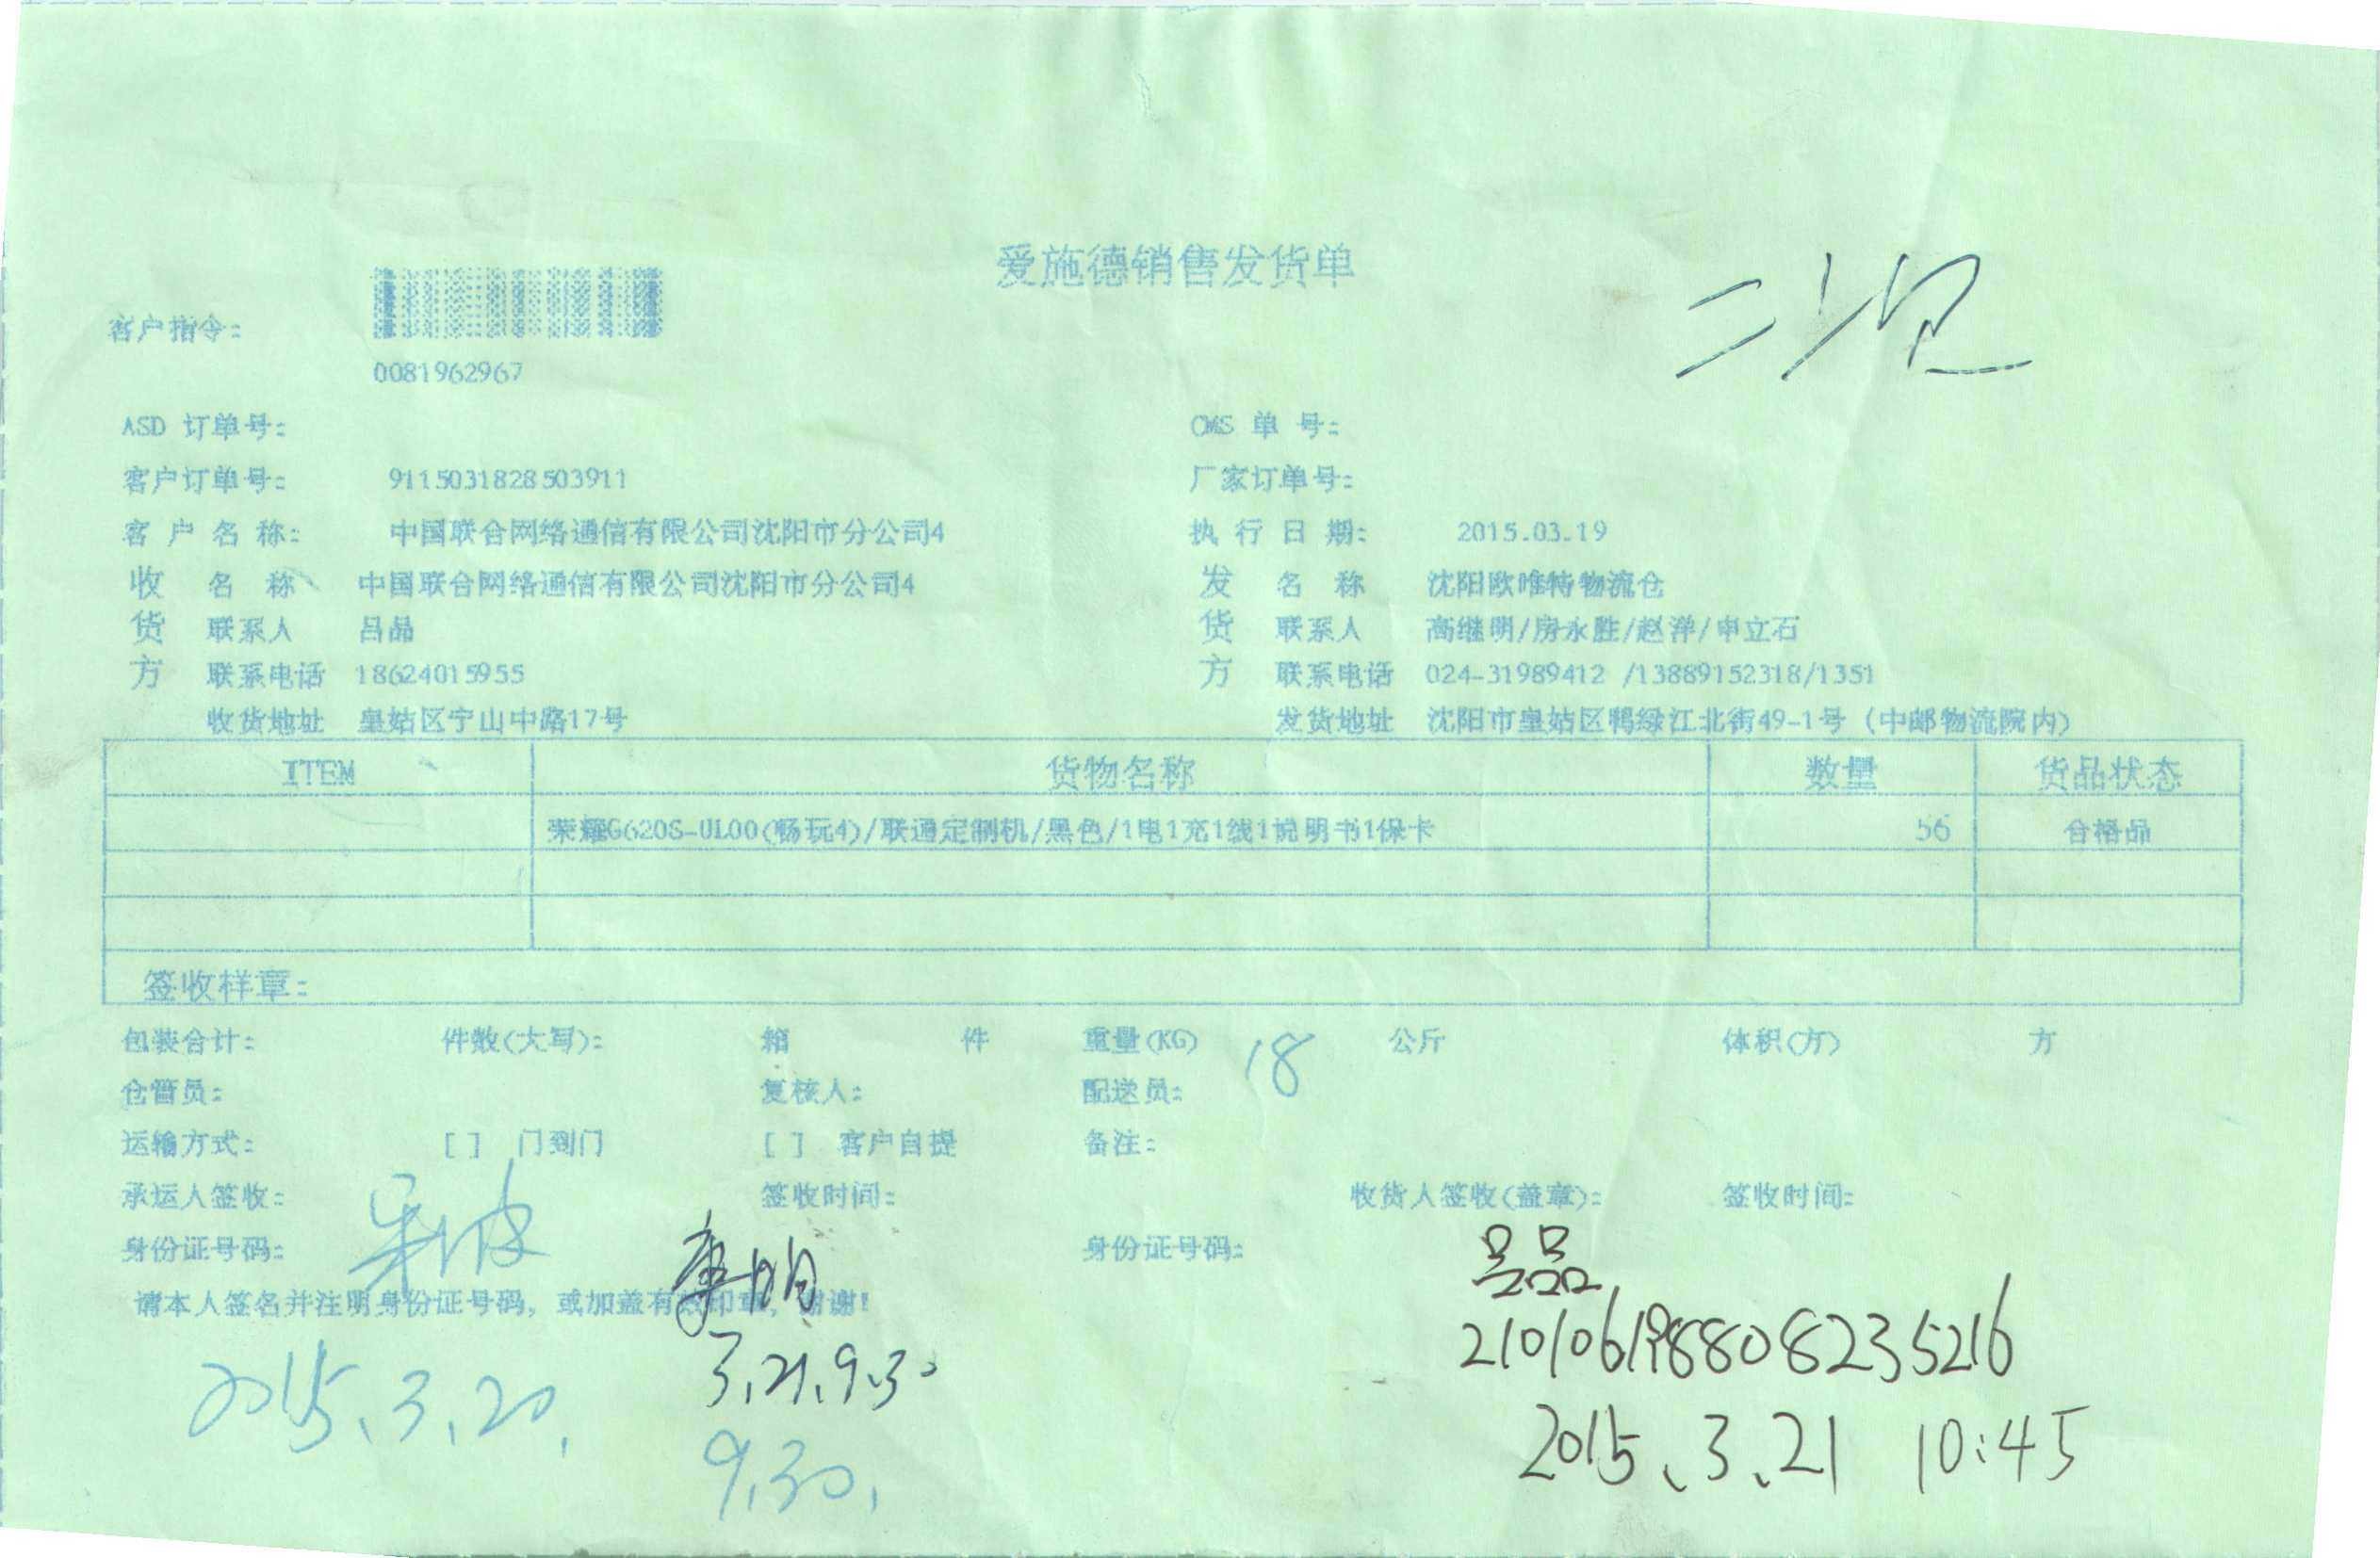 爱施德销售发货单
客户指令:
0081962967
ASD 订单号: OMS 单 号:
客户订单号: 9115031828503911 厂家订单号:
客 户 名 称: 中国联合网络通信有限公司沈阳市分公司4 执 行 日 期: 2015.03.19
收 名 称 中国联合网络通信有限公司沈阳市分公司4 发 名 称 沈阳欧唯特物流仓
货 联系人 吕品 货 联系人 高继明/房永胜/赵洋/申立石
方 联系电话 18624015955 方 联系电话 024-31989412 /13889152318/1351
收货地址 皇姑区宁山中路17号 发货地址 沈阳市皇姑区鸭绿江北街49-1号 (中邮物流院内)
ITEM 货物名称 数量 货品状态
荣耀G620S-UL00(畅玩4)/联通定制机/黑色/1电1充1线1说明书1保卡 56 合格品
签收样章:
包装合计: 件数(大写): 箱 件 重量(KG) 18 公斤 体积(方) 方
仓管员: 复核人: 配送员:
运输方式: [ ] 门到门 [ ] 客户自提 备注:
承运人签收: 签收时间: 收货人签收(盖章): 签收时间:
身份证号码: 身份证号码: 吕品
请本人签名并注明身份证号码, 或加盖有效印章, 谢谢!
210106198808235216
3.21.9.30
2015.3.20.
2015.3.21 10:45
9.30.